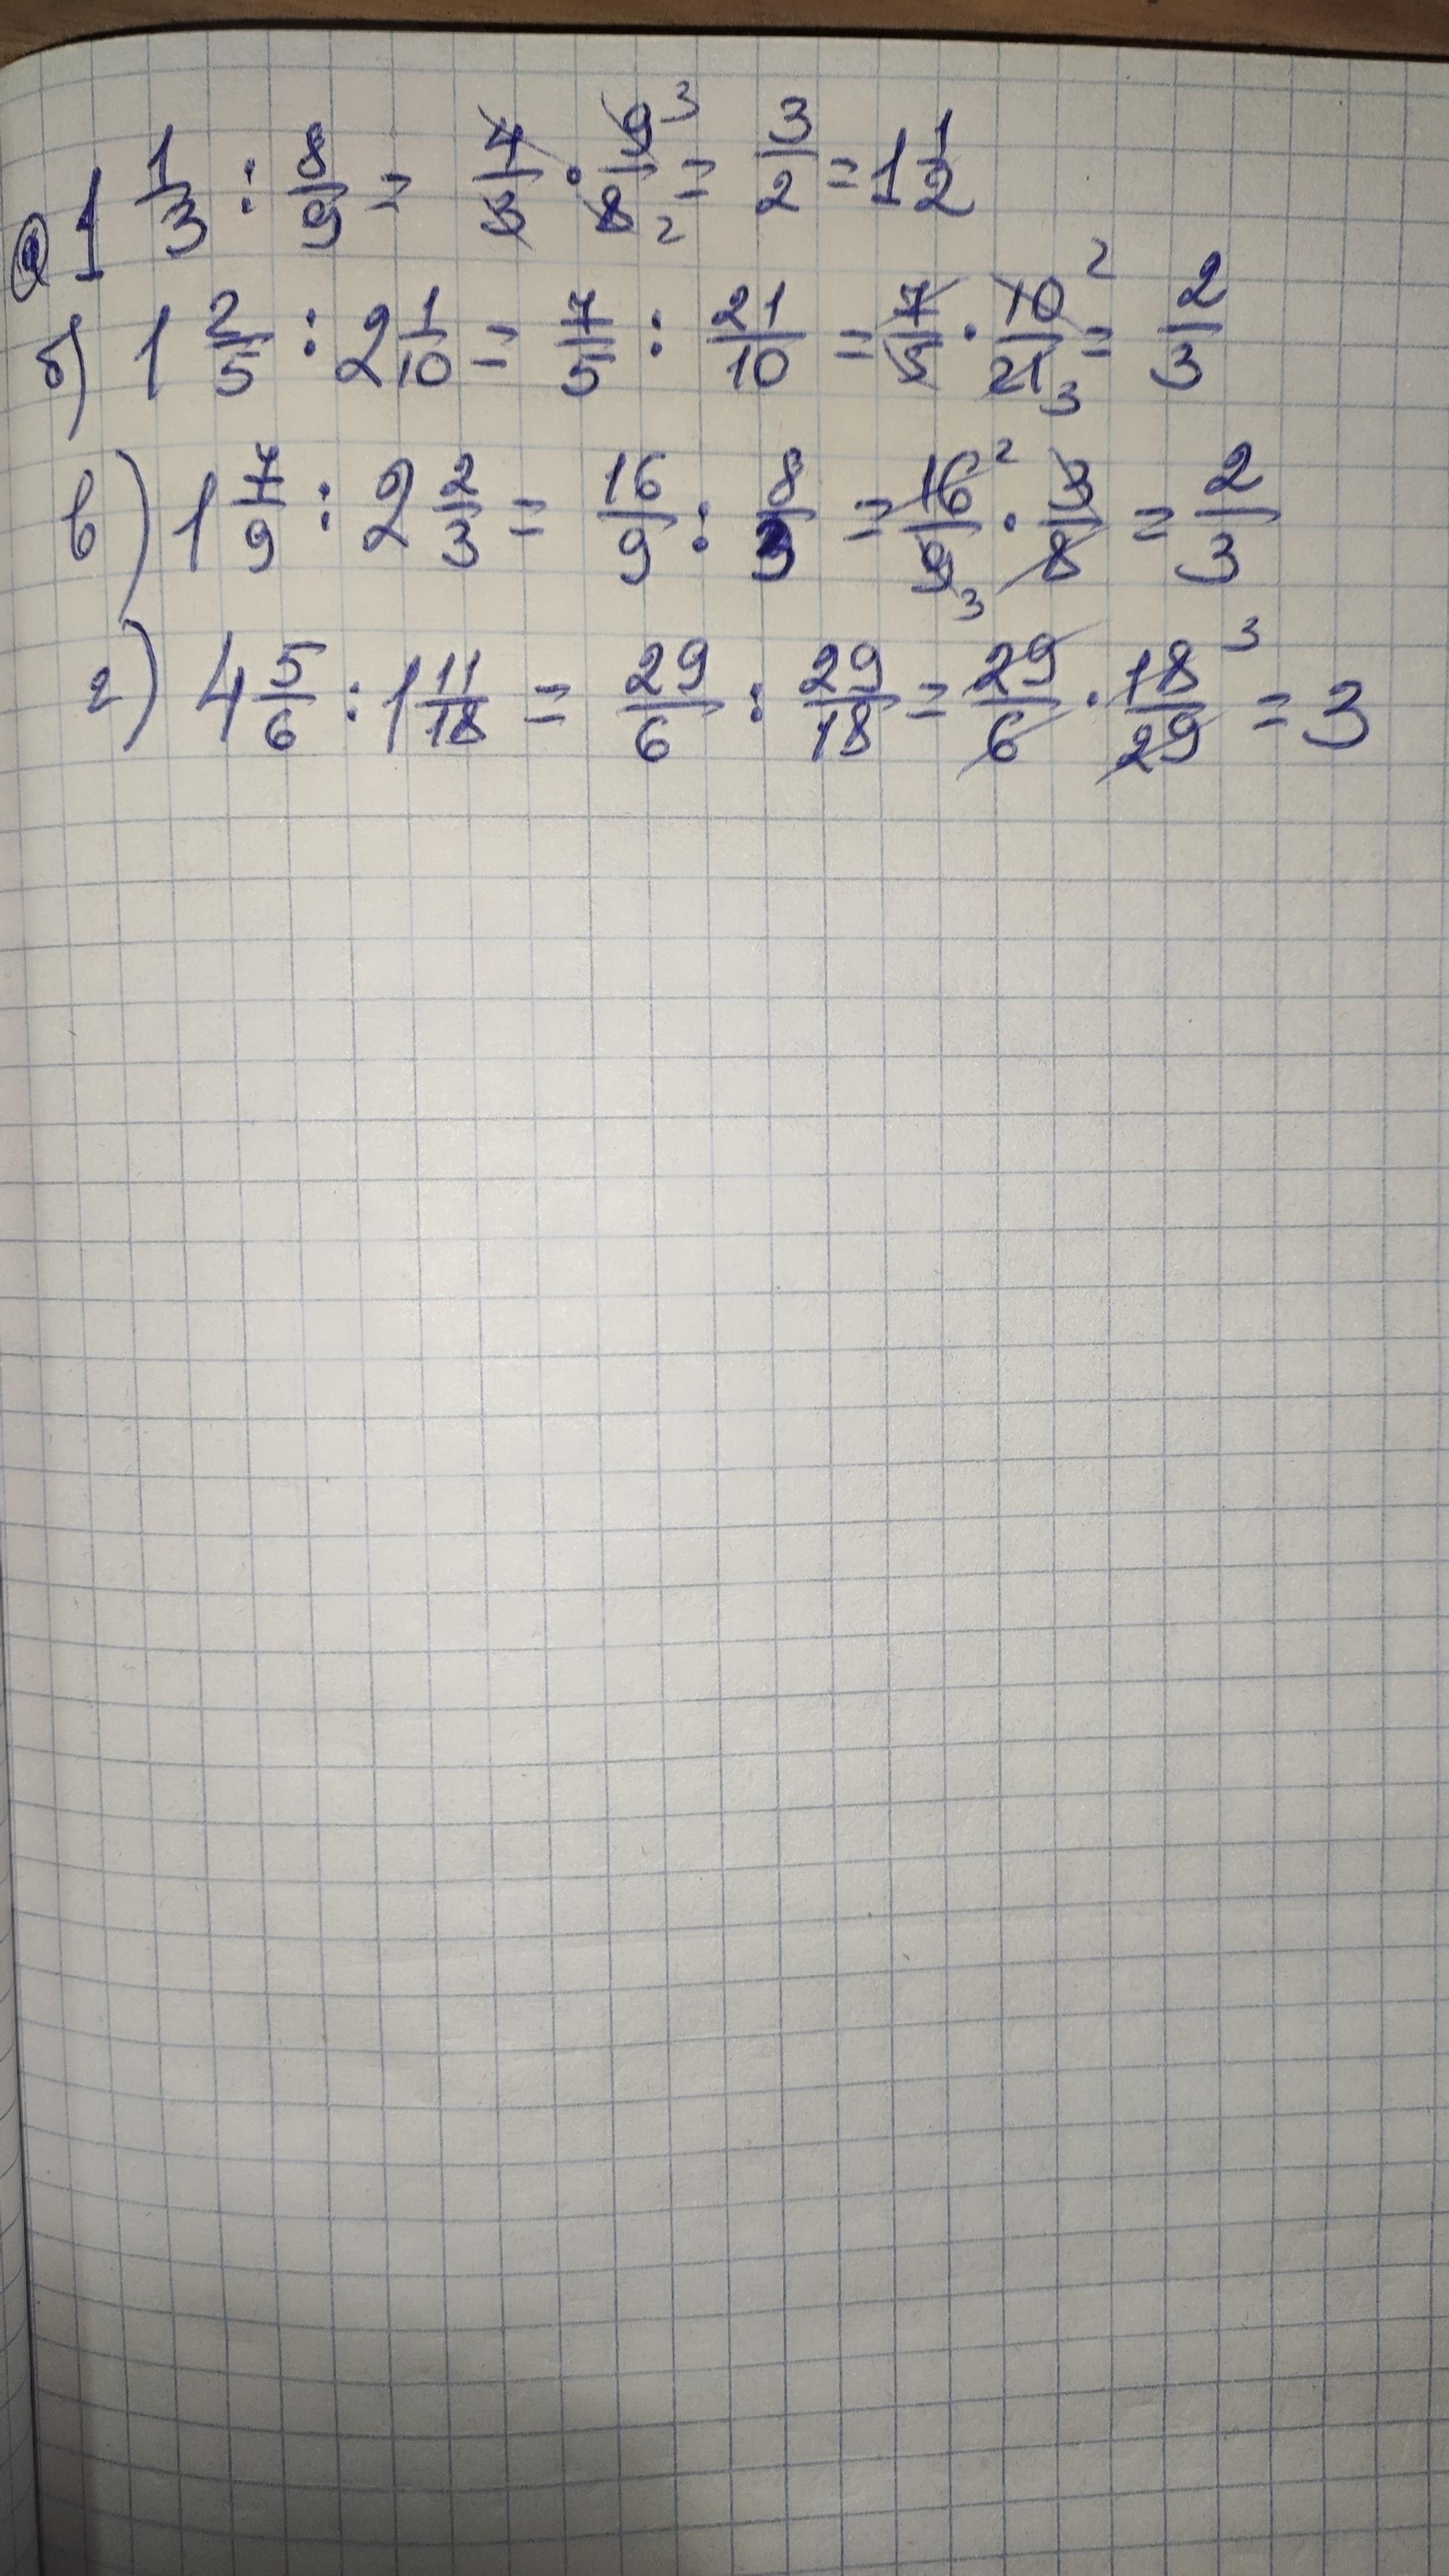 а) 1 1/3 : 8/9 = 4/3 · 9/8 3 2 = 3/2 = 1 1/2
б) 1 2/5 : 2 1/10 = 7/5 : 21/10 = 7/5 · 10/21 2 3 = 2/3
в) 1 7/9 : 2 2/3 = 16/9 : 8/3 = 16/9 2 3 · 3/8 = 2/3
г) 4 5/6 : 1 11/18 = 29/6 : 29/18 = 29/6 · 18/29 3 = 3